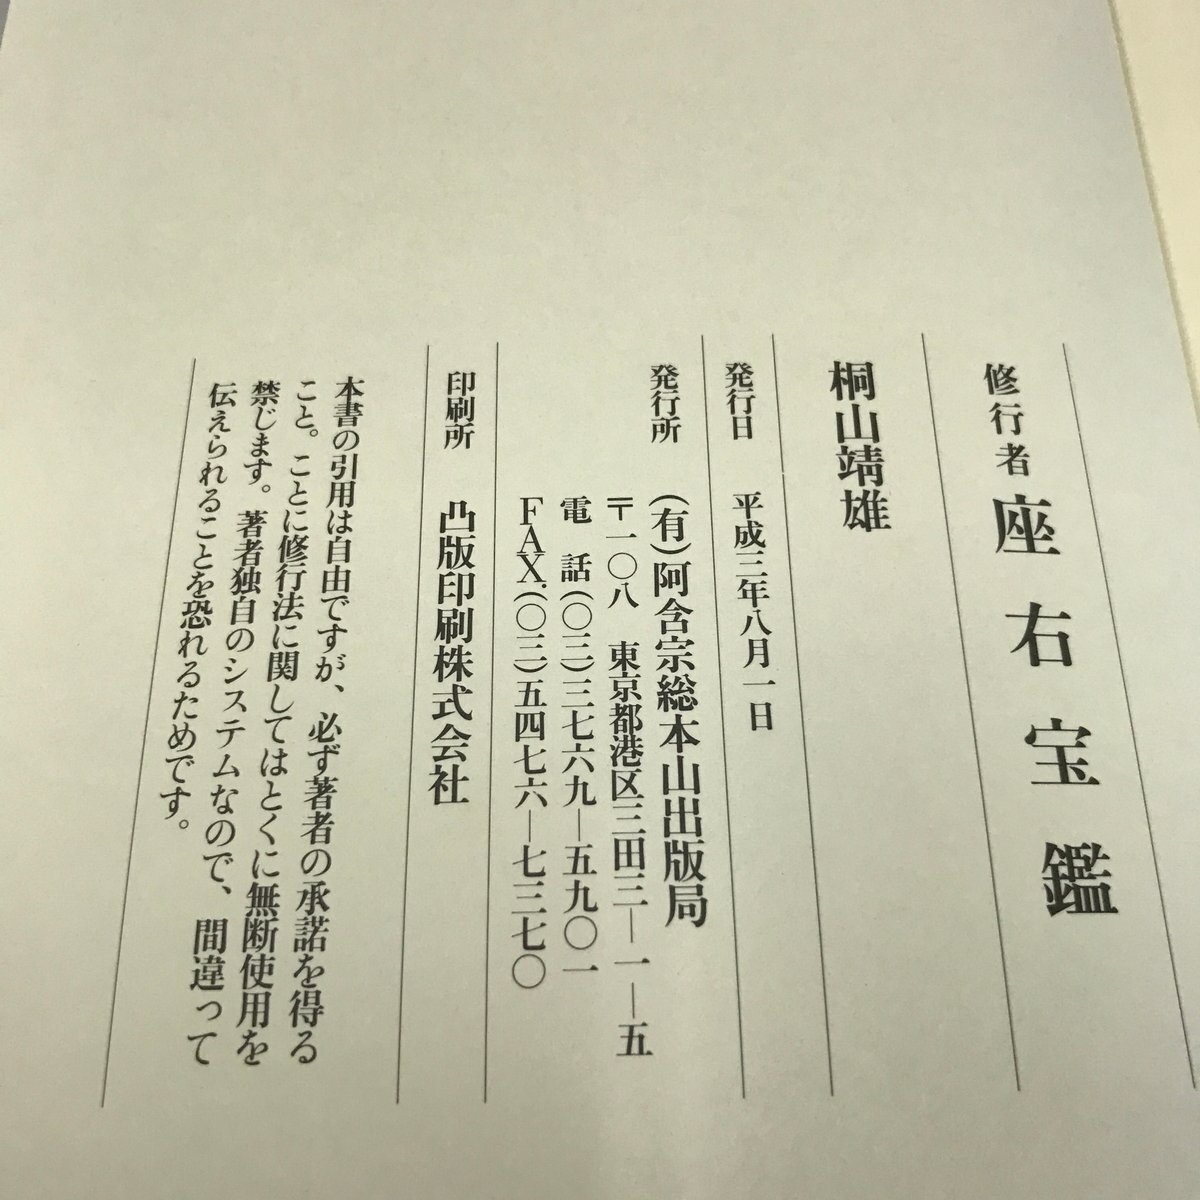 修行者 座右宝鑑
桐山靖雄
発行日 平成三年八月一日
発行所 (有)阿含宗総本山出版局
〒一〇八 東京都港区三田三―一―五
電話(〇三)三七六九―五九〇一
FAX.(〇三)五四七六―七三七〇
印刷所 凸版印刷株式会社
本書の引用は自由ですが、必ず著者の承諾を得る
こと。ことに修行法に関してはとくに無断使用を
禁じます。著者独自のシステムなので、間違って
伝えられることを恐れるためです。